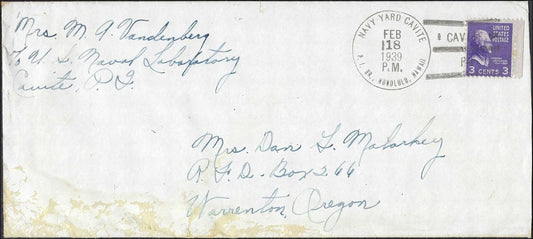 Mrs. M. A. Vandenberg
℅ U. S. Naval Laboratory
Cavite, P.I.
NAVY YARD CAVITE
FEB
18
1939
P.M.
P. I. BR., HONOLULU, HAWAII
CAV
P
UNITED
STATES
POSTAGE
3 CENTS 3
Mrs. Dan L. Malarkey
R. F. D. Box 266
Warrenton, Oregon